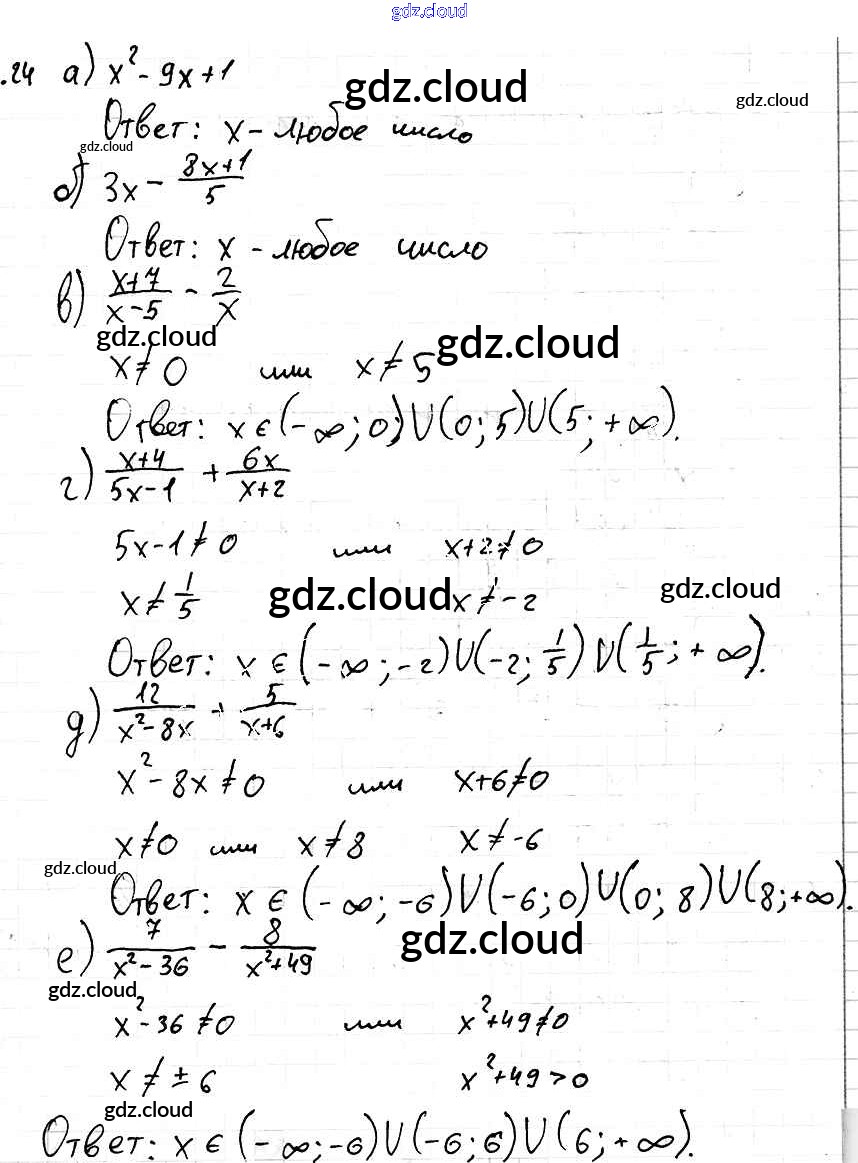 gdz.cloud
.24 а) x² - 9x + 1
gdz.cloud
gdz.cloud
Ответ: x - любое число
gdz.cloud
б) 3x - (8x+1)/5
Ответ: x - любое число
в) (x+7)/(x-5) - 2/x
gdz.cloud
gdz.cloud
x ≠ 0 или x ≠ 5
Ответ: x ∈ (-∞; 0) U (0; 5) U (5; +∞).
г) (x+4)/(5x-1) + 6x/(x+2)
5x-1 ≠ 0 или x+2 ≠ 0
x ≠ 1/5 x ≠ -2
gdz.cloud
gdz.cloud
Ответ: x ∈ (-∞; -2) U (-2; 1/5) U (1/5; +∞).
д) 12/(x²-8x) + 5/(x+6)
x² - 8x ≠ 0 или x+6 ≠ 0
x ≠ 0 или x ≠ 8 x ≠ -6
gdz.cloud
Ответ: x ∈ (-∞; -6) U (-6; 0) U (0; 8) U (8; +∞).
е) 7/(x²-36) - 8/(x²+49)
gdz.cloud
gdz.cloud
x² - 36 ≠ 0 или x² + 49 ≠ 0
x ≠ ± 6 x² + 49 > 0
gdz.cloud
Ответ: x ∈ (-∞; -6) U (-6; 6) U (6; +∞).